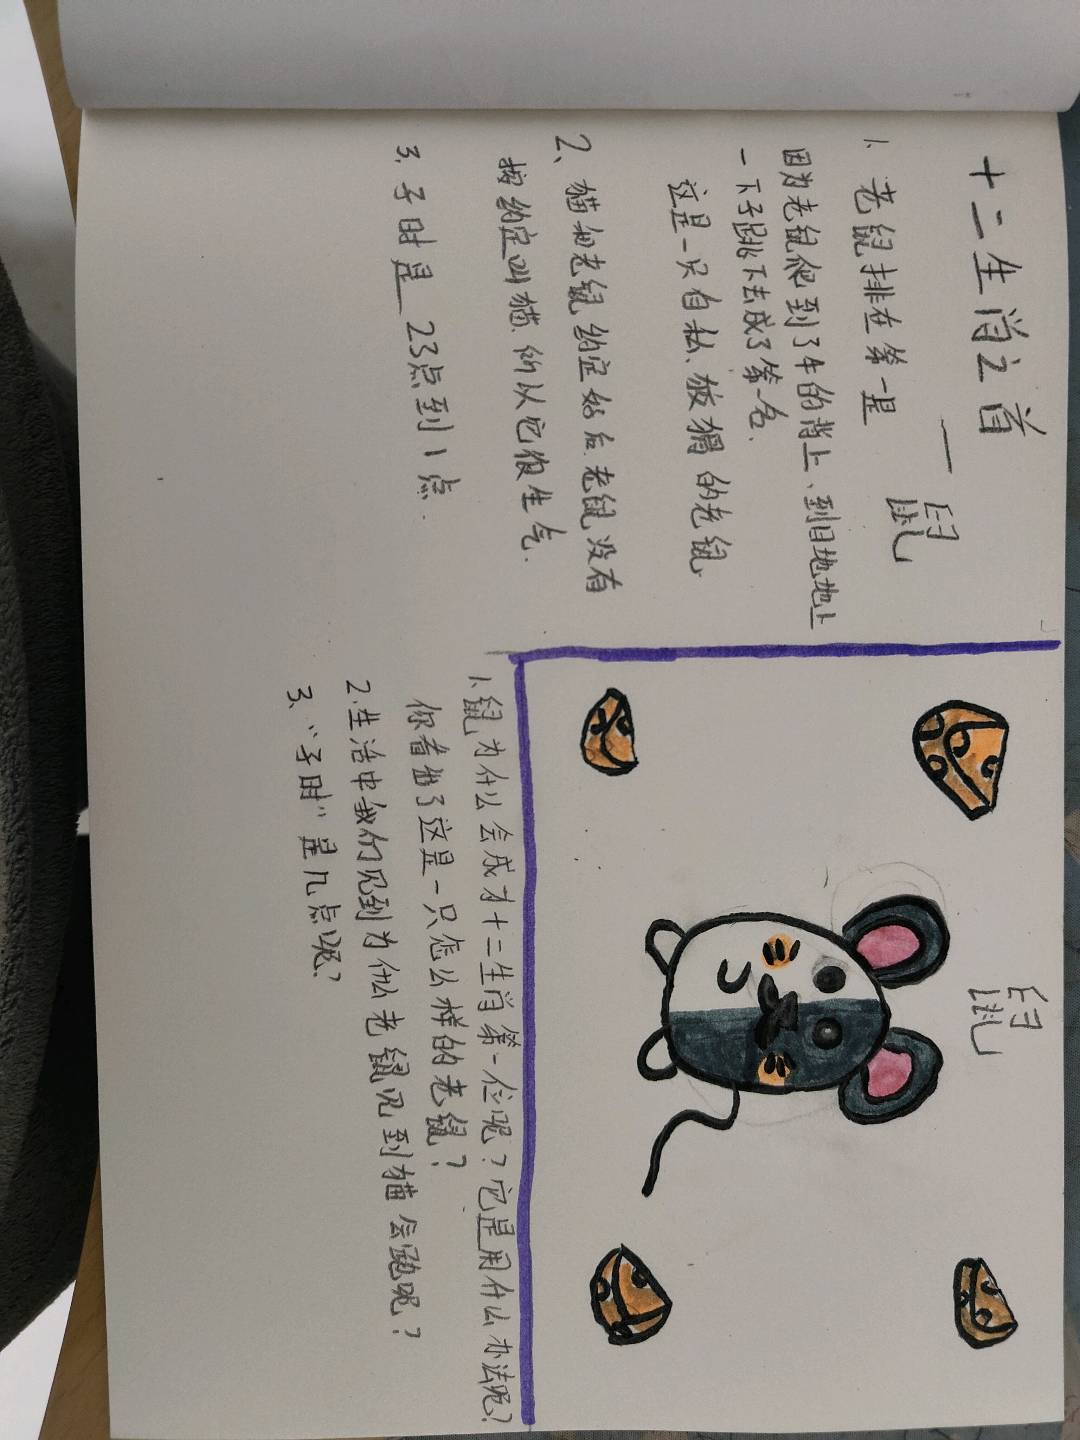 十二生肖之首
—鼠
1、老鼠排在第一是
因为老鼠爬到了牛的背上、到目地地上
一下子跳下去成了第一名.
这是一只自私、狡猾的老鼠.
2、猫和老鼠约定好后.老鼠没有
按约定叫猫.所以它很生气.
3、子时是 23点到1点.
鼠
1、鼠为什么会成为十二生肖第一位呢？它是用什么办法呢？
你看出了这是一只怎么样的老鼠？
2、生活中我们见到为什么老鼠见到猫会跑呢？
3、“子时”是几点呢？